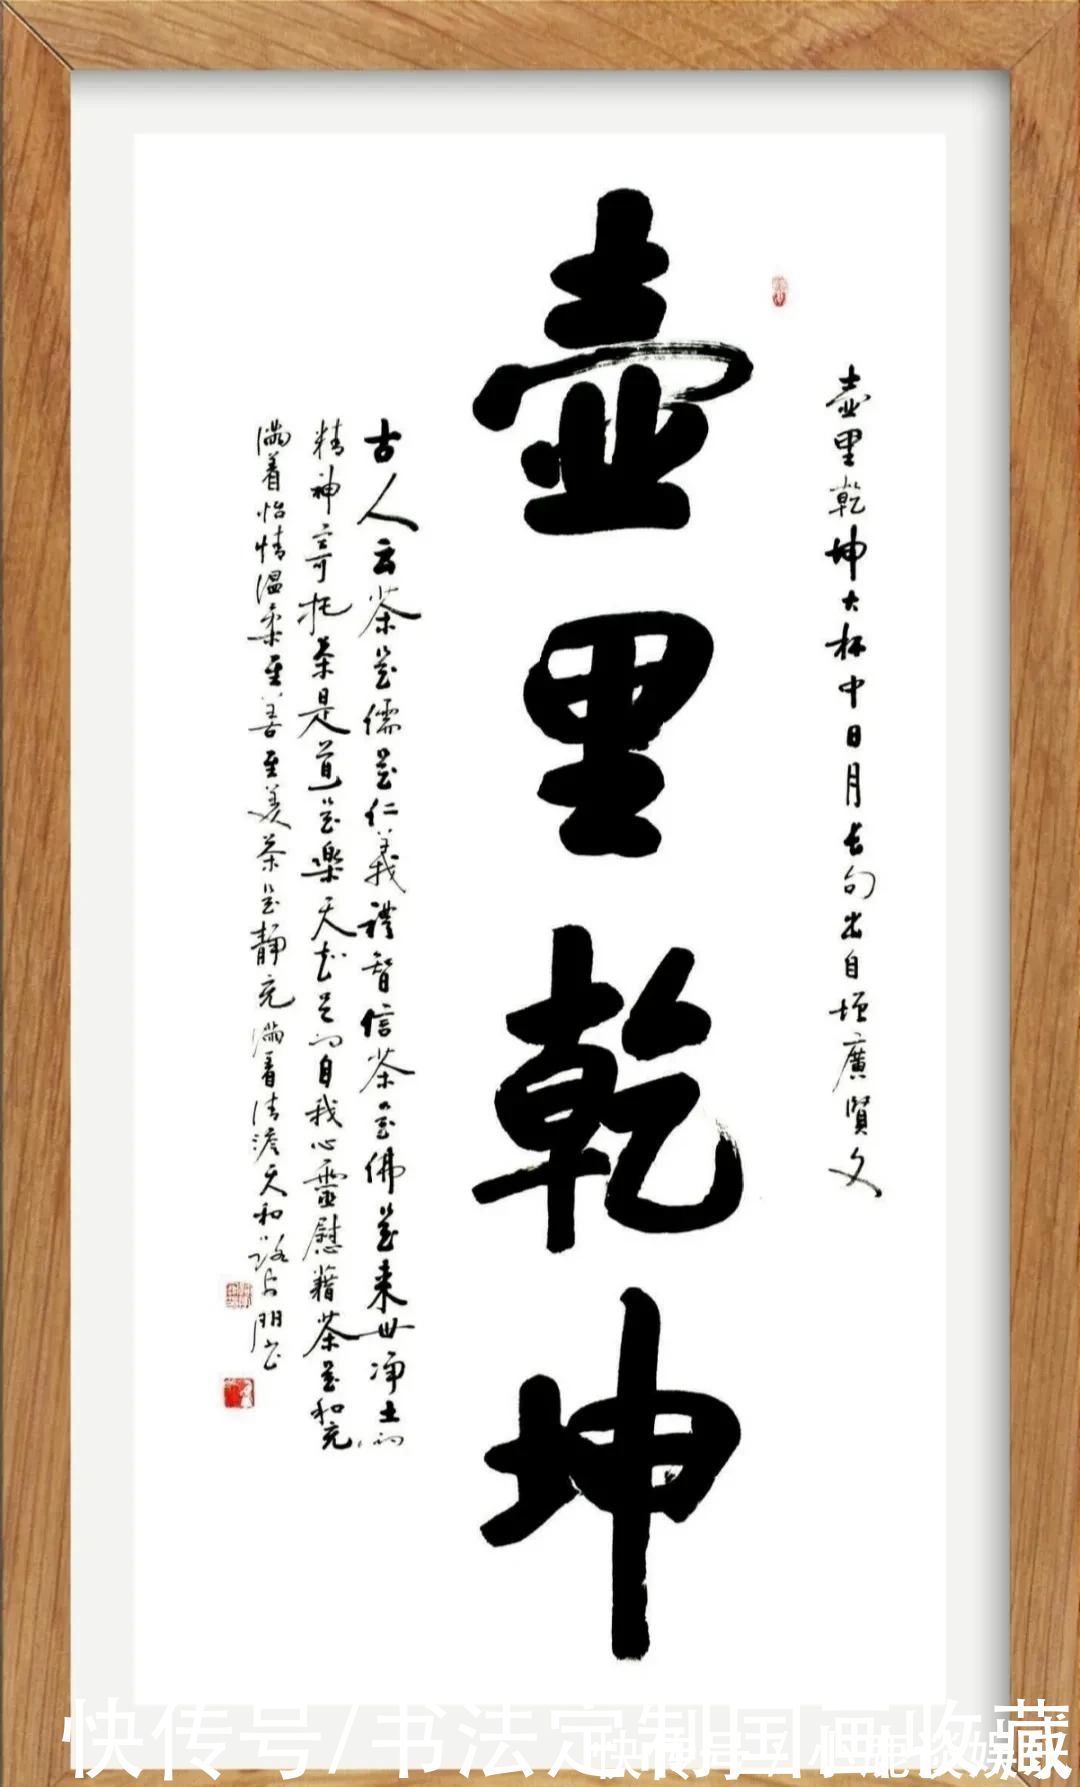 壺里乾坤大杯中日月長句出自增廣賢文
壺里乾坤
古人云茶是儒是仁義禮智信茶是佛是来世净土的
精神寄托茶是道是樂天知足的自我心靈慰藉茶是和充
满着怡情温柔至善至美茶是静充满着清澹天和
快传号/书法定制国画收藏